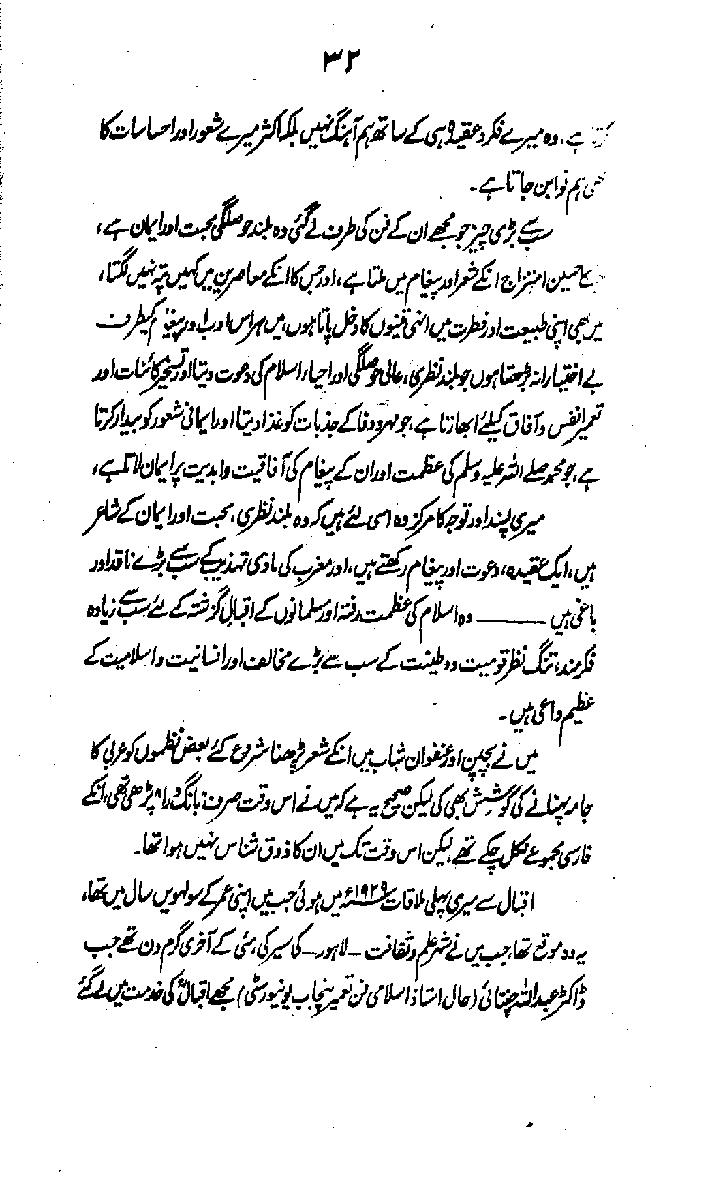 ۳۲
ہے، وہ میرے فکر و عقیدہ ہی کے ساتھ ہم آہنگ نہیں بلکہ اکثر میرے شعور اور احساسات کا
ہم نوا بن جاتا ہے۔
سب سے بڑی چیز جو مجھے ان کے فن کی طرف لے گئی وہ بلند حوصلگی محبت اور ایمان ہے،
حسین امتزاج انکے شعر اور پیغام میں ملتا ہے، اور جس کا انکے معاصرین میں کہیں پتہ نہیں لگتا،
میں بھی اپنی طبیعت اور فطرت میں انہی تینوں کا دخل پاتا ہوں، میں ہر اس ادب اور پیغام کیطرف
بے اختیارانہ بڑھتا ہوں جو بلند نظری، عالی حوصلگی اور احیاء اسلام کی دعوت دیتا اور تسخیر کائنات اور
تعمیر انفس و آفاق کیلئے ابھارتا ہے، جو مہر و وفا کے جذبات کو غذا دیتا اور ایمانی شعور کو بیدار کرتا
ہے، جو محمد صلے اللہ علیہ وسلم کی عظمت اور ان کے پیغام کی آفاقیت و ابدیت پر ایمان لاتا ہے،
میری پسند اور توجہ کا مرکز وہ اسی لئے ہیں کہ وہ بلند نظری، محبت اور ایمان کے شاعر
ہیں، ایک عقیدہ، دعوت اور پیغام رکھتے ہیں، اور مغرب کی مادی تہذیب کے سب سے بڑے ناقد اور
باغی ہیں ——— وہ اسلام کی عظمت رفتہ اور مسلمانوں کے اقبال گزشتہ کے لئے سب سے زیادہ
فکر مند، تنگ نظر قومیت و وطنیت کے سب سے بڑے مخالف اور انسانیت و اسلامیت کے
عظیم داعی ہیں۔
میں نے بچپن اور عنفوان شباب میں انکے شعر پڑھنا شروع کئے بعض نظموں کو عربی کا
جامہ پہنانے کی کوشش بھی کی لیکن صحیح یہ ہے کہ میں نے اس وقت صرف "بانگ درا" پڑھی تھی، انکے
فارسی مجموعے نکل چکے تھے، لیکن اس وقت تک میں ان کا ذوق شناس نہیں ہوا تھا۔
اقبال سے میری پہلی ملاقات ۱۹۲۹ء میں ہوئی جب میں اپنی عمر کے سولہویں سال میں تھا،
یہ وہ موقع تھا، جب میں نے شہر علم و ثقافت – لاہور – کی سیر کی، مئی کے آخری گرم دن تھے جب
ڈاکٹر عبداللہ چغتائی (حال استاذ اسلامی فن تعمیر پنجاب یونیورسٹی) مجھے اقبالؒ کی خدمت میں لے گئے